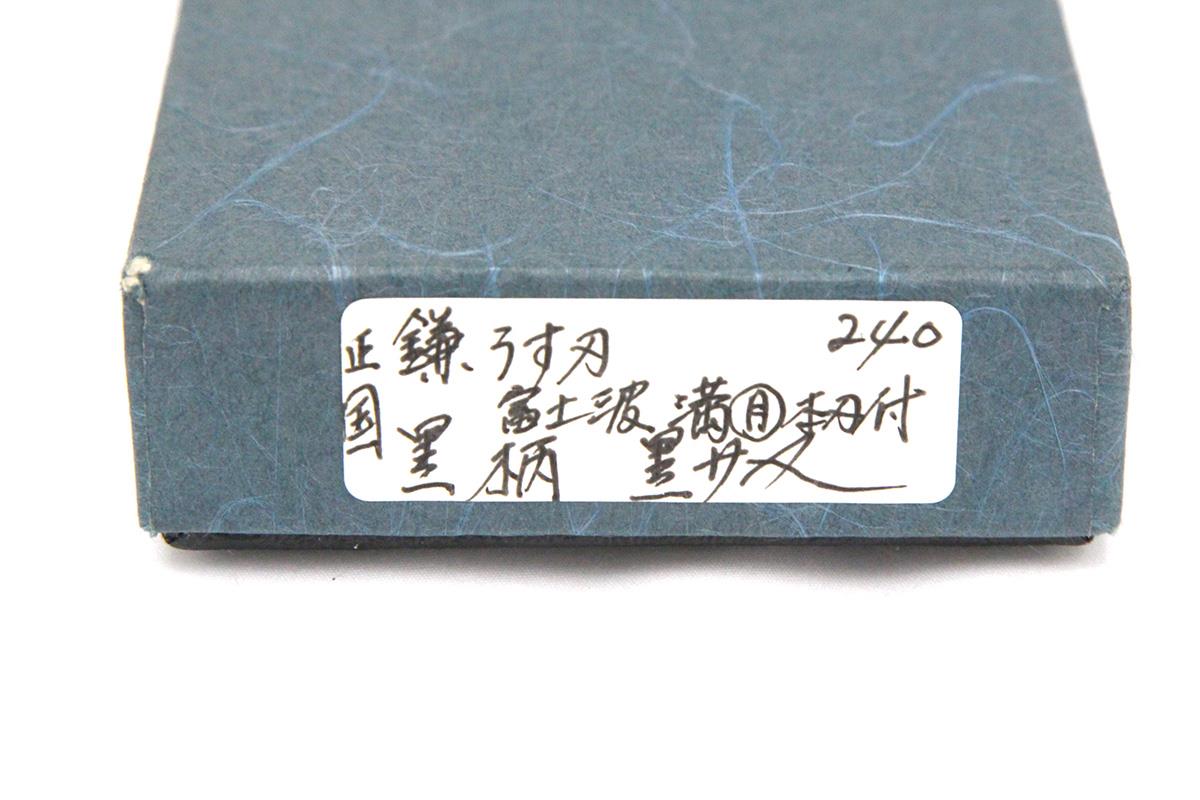 正国 鎌 うす刃 240
富士波 満月 本刃付
黒柄 黒サメ